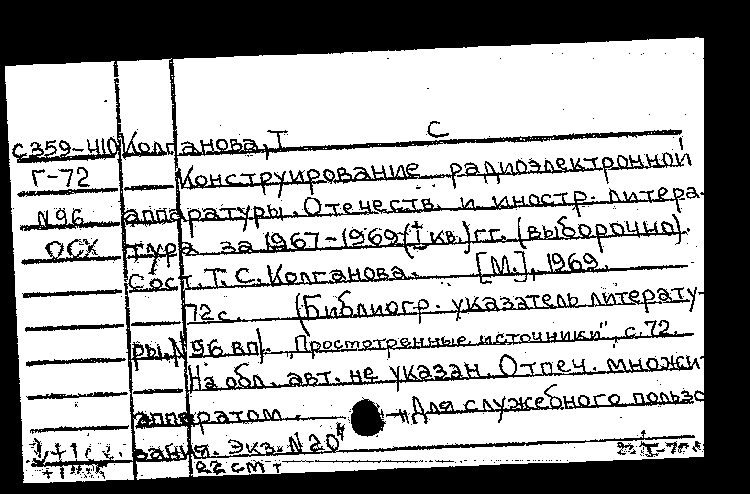 С
С359-410 Колганова, Т
Г-72 Конструирование радиоэлектронной
N96 аппаратуры. Отечеств. и иностр. литера-
ОСХ тура за 1967-1969 (I кв.) гг. (выборочно).
Сост. Т. С. Колганова. [М.], 1969.
72 с. (Библиогр. указатель литерату-
ры. N 96 вп). „Просмотренные источники", с. 72.
На обл. авт. не указан. Отпеч. множит
аппаратом. „Для служебного пользо
вания. Экз. N 20"
22 см